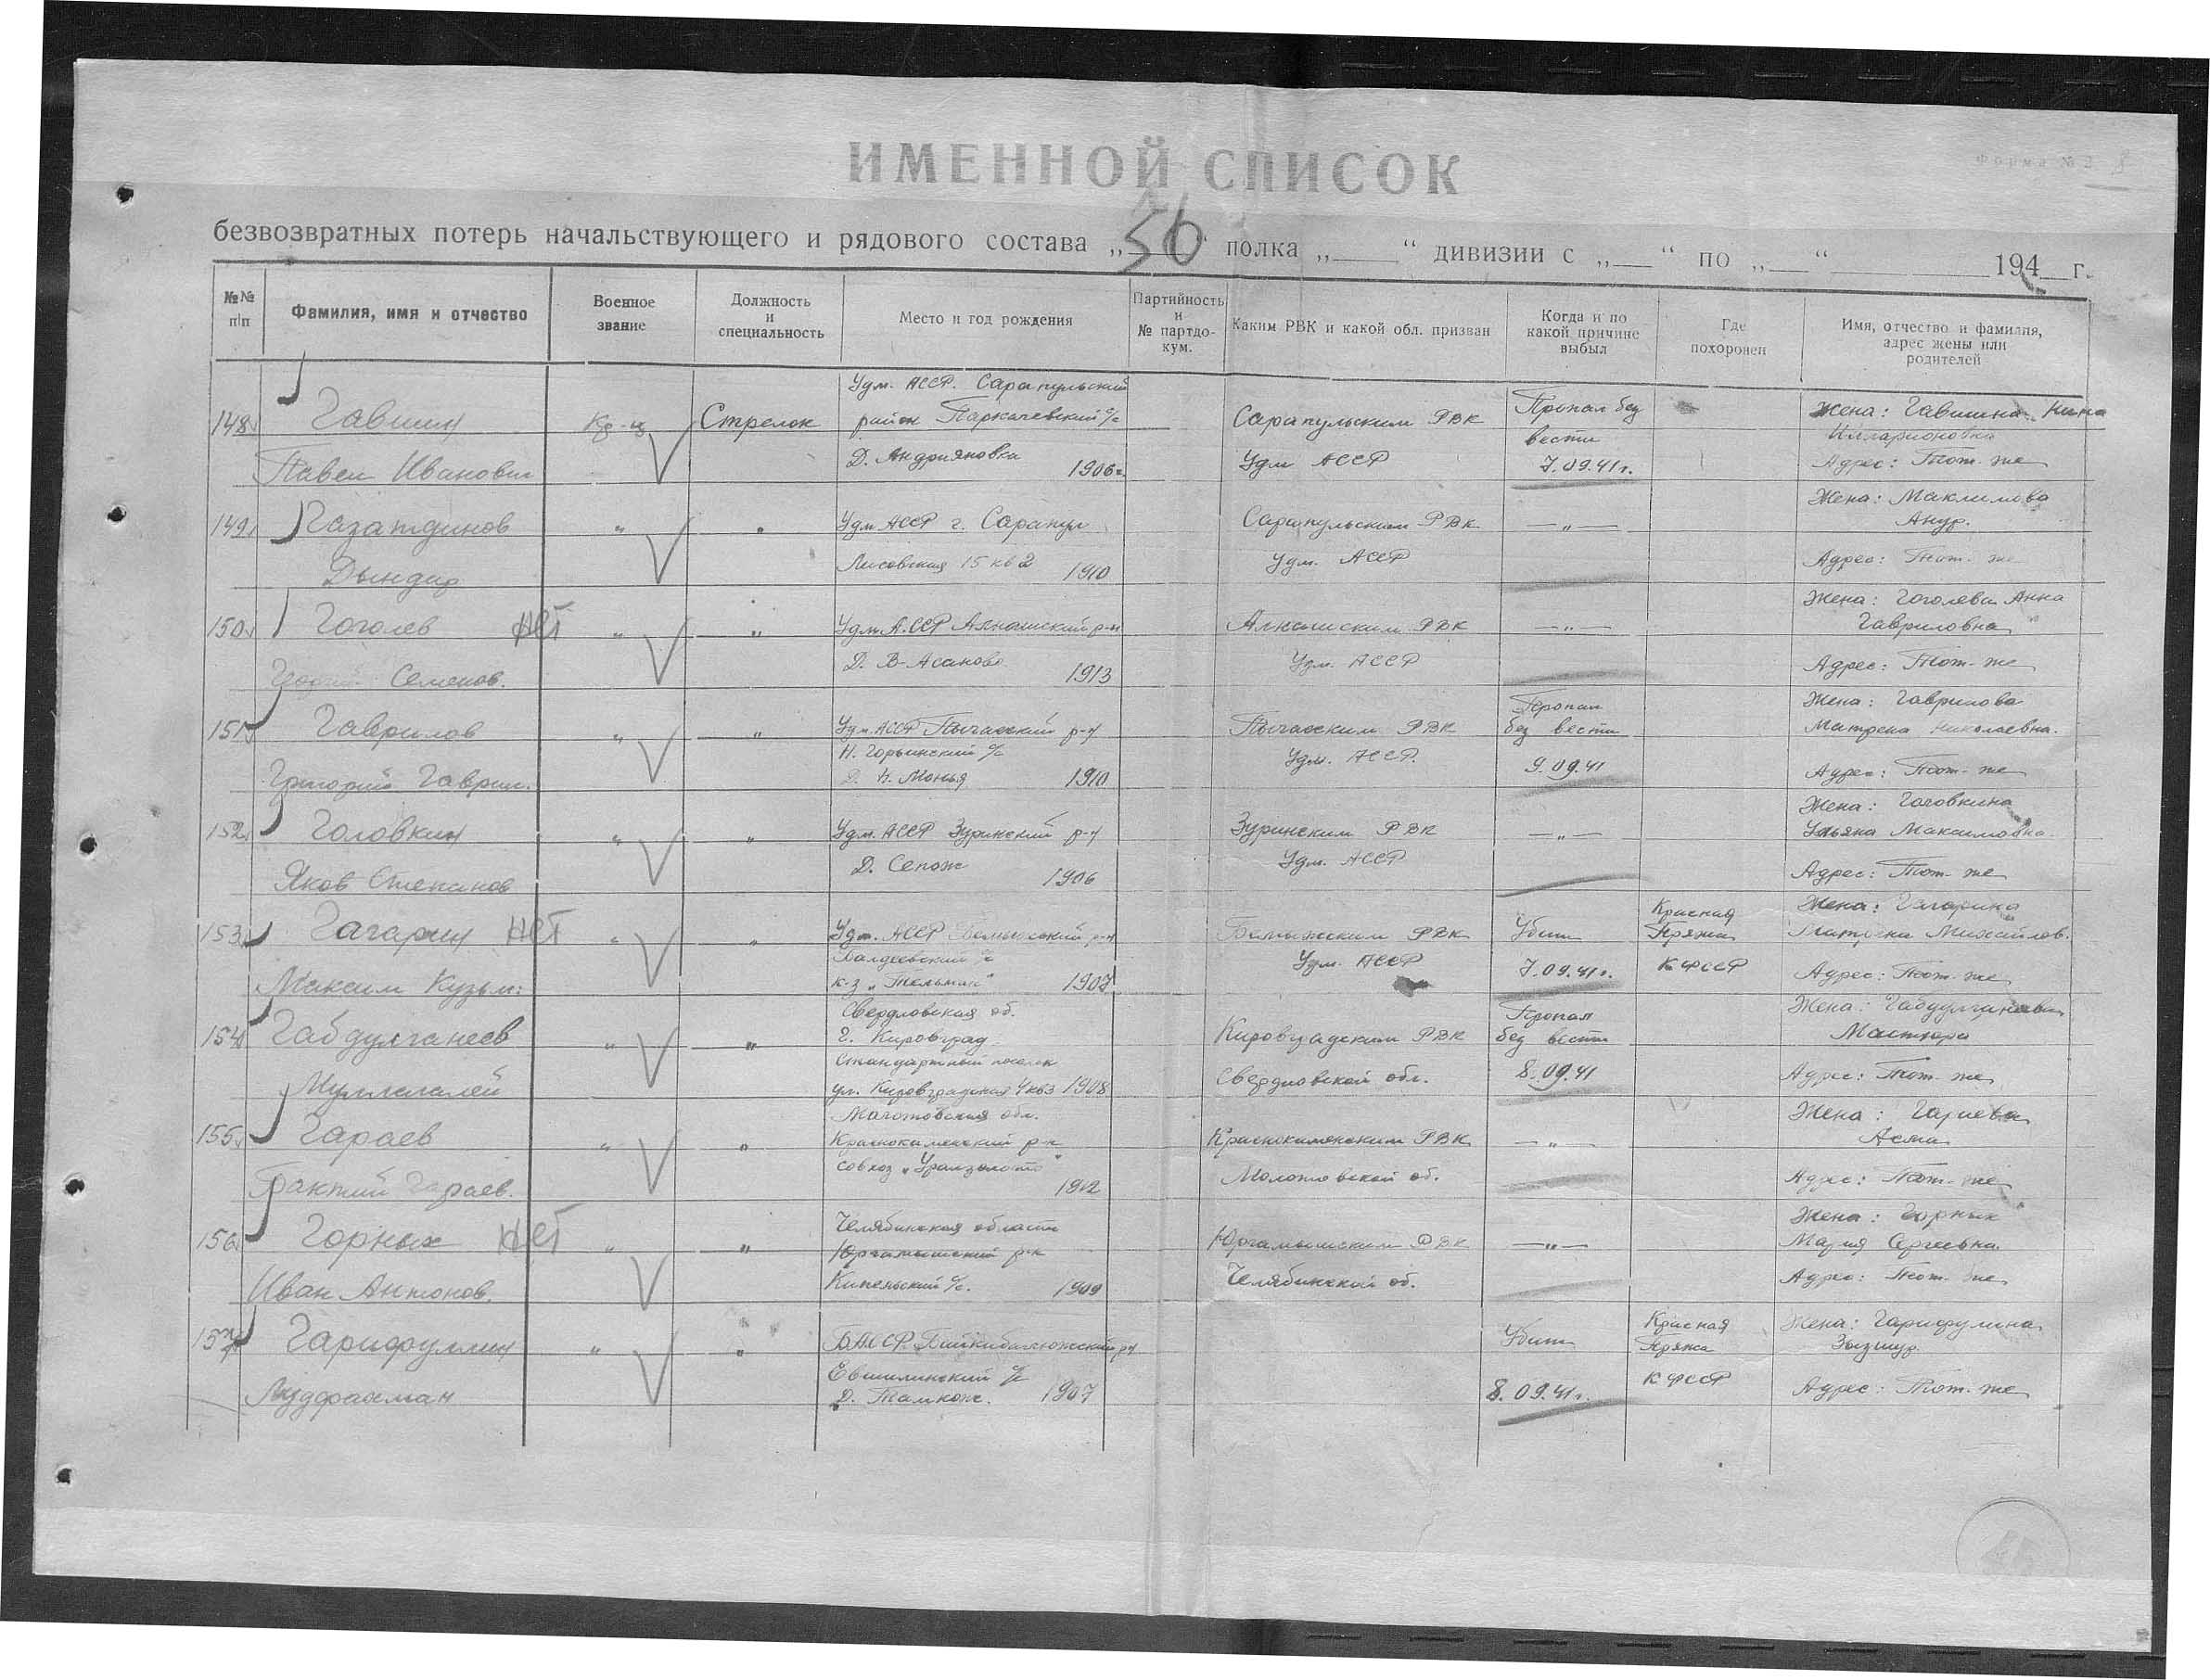 Форма № 2
ИМЕННОЙ СПИСОК
безвозвратных потерь начальствующего и рядового состава „56“ полка „___“ дивизии с „___“ по „___“ ______ 194__ г.
№№ п|п
Фамилия, имя и отчество
Военное звание
Должность и специальность
Место и год рождения
Партийность и № партдо-кум.
Каким РВК и какой обл. призван
Когда и по какой причине выбыл
Где похоронен
Имя, отчество и фамилия, адрес жены или родителей
148 Гавшин Павел Иванович
Кр-ц Стрелок
Удм. АССР. Сарапульский
район с/с
Д. Андрияновка 1906г.
Сарапульским РВК
Удм АССР
Пропал без
вести
7.09.41г.
Жена: Гавшина Нина
Илларионовна
Адрес: Тот-же
149 Газатдинов
" "
Удм АССР г. Сарапул
15 кв 2 1910
Сарапульским РВК
Удм. АССР
—"—
Жена:
Адрес: Тот-же
150 Гоголев нет
Семенов.
" "
Удм. АССР Алнашский р-н
Д. В-Асаново 1913
Алнашским РВК
Удм. АССР
—"—
Жена: Гоголева Анна
Гавриловна
Адрес: Тот-же
151 Гаврилов
Григорий Гаврил.
" "
Удм. АССР Пычасский р-н
с/с
Д. Н. Монья 1910
Пычасским РВК
Удм. АССР.
Пропал
без вести
9.09.41
Жена: Гаврилова
Матрена Николаевна.
Адрес: Тот-же
152 Головкин
Яков Степанов
" "
Удм. АССР Зуринский р-н
Д. Сепож 1906
Зуринским РВК
Удм. АССР
—"—
Жена: Головкина
Ульяна Максимовна
Адрес: Тот-же
153 Гагарин нет
Максим Кузьм.
" "
Удм. АССР р-н
с/с
к-з „Тельман“ 1907
РВК
Удм. АССР
Убит
7.09.41г.
Красная
Пряжа
КФССР
Жена: Гагарина
Михайлов.
Адрес: Тот-же
154 Габдулганеев
" "
Свердловская об.
г. Кировград
стандартный поселок
ул. Кировградская 4 кв3 1908
Кировградским РВК
Свердловской обл.
Пропал
без вести
8.09.41
Жена:
Адрес: Тот-же
155 Гараев
Гараев.
" "
Молотовская обл.
Краснокамский р-н
совхоз „Уралзолото“
1912
РВК
Молотовской об.
—"—
Жена: Гараева
Асма
Адрес: Тот-же
156 Горных нет
Иван Антонов.
" "
Челябинская область
Юргамышский р-н
Кипельский с/с. 1909
Юргамышским РВК
Челябинской об.
—"—
Жена: Горных
Мария Сергеевна.
Адрес: Тот-же
157 Гарифуллин
Лудфрахман
" "
БАССР. р-н
с/с
Д. 1907
Убит
8.09.41г.
Красная
Пряжа
КФССР
Жена: Гарифулина
Адрес: Тот-же